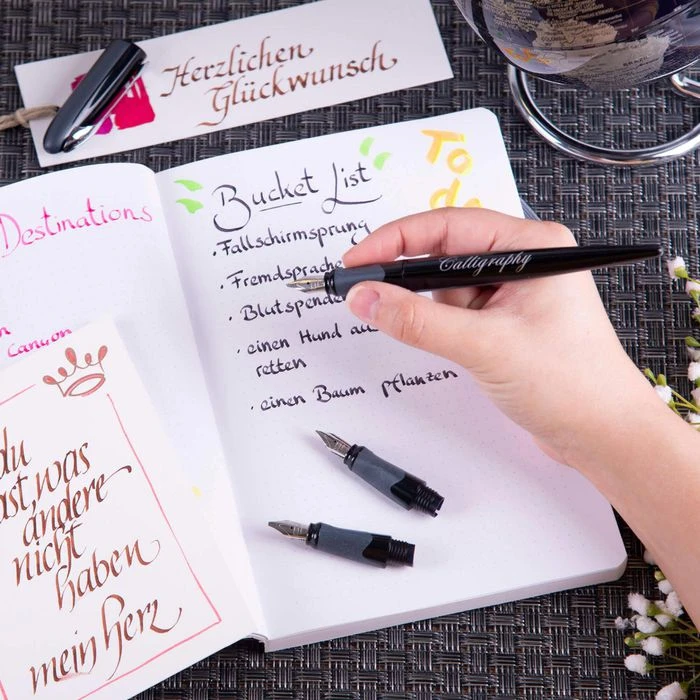 Herzlichen
Glückwunsch
Destinations
Canyon
Bucket List
To
do
• Fallschirmsprung
• Fremdsprache
• Blutspende
• einen Hund
retten
• einen Baum pflanzen
Calligraphy
du
was
andere
nicht
haben
mein Herz